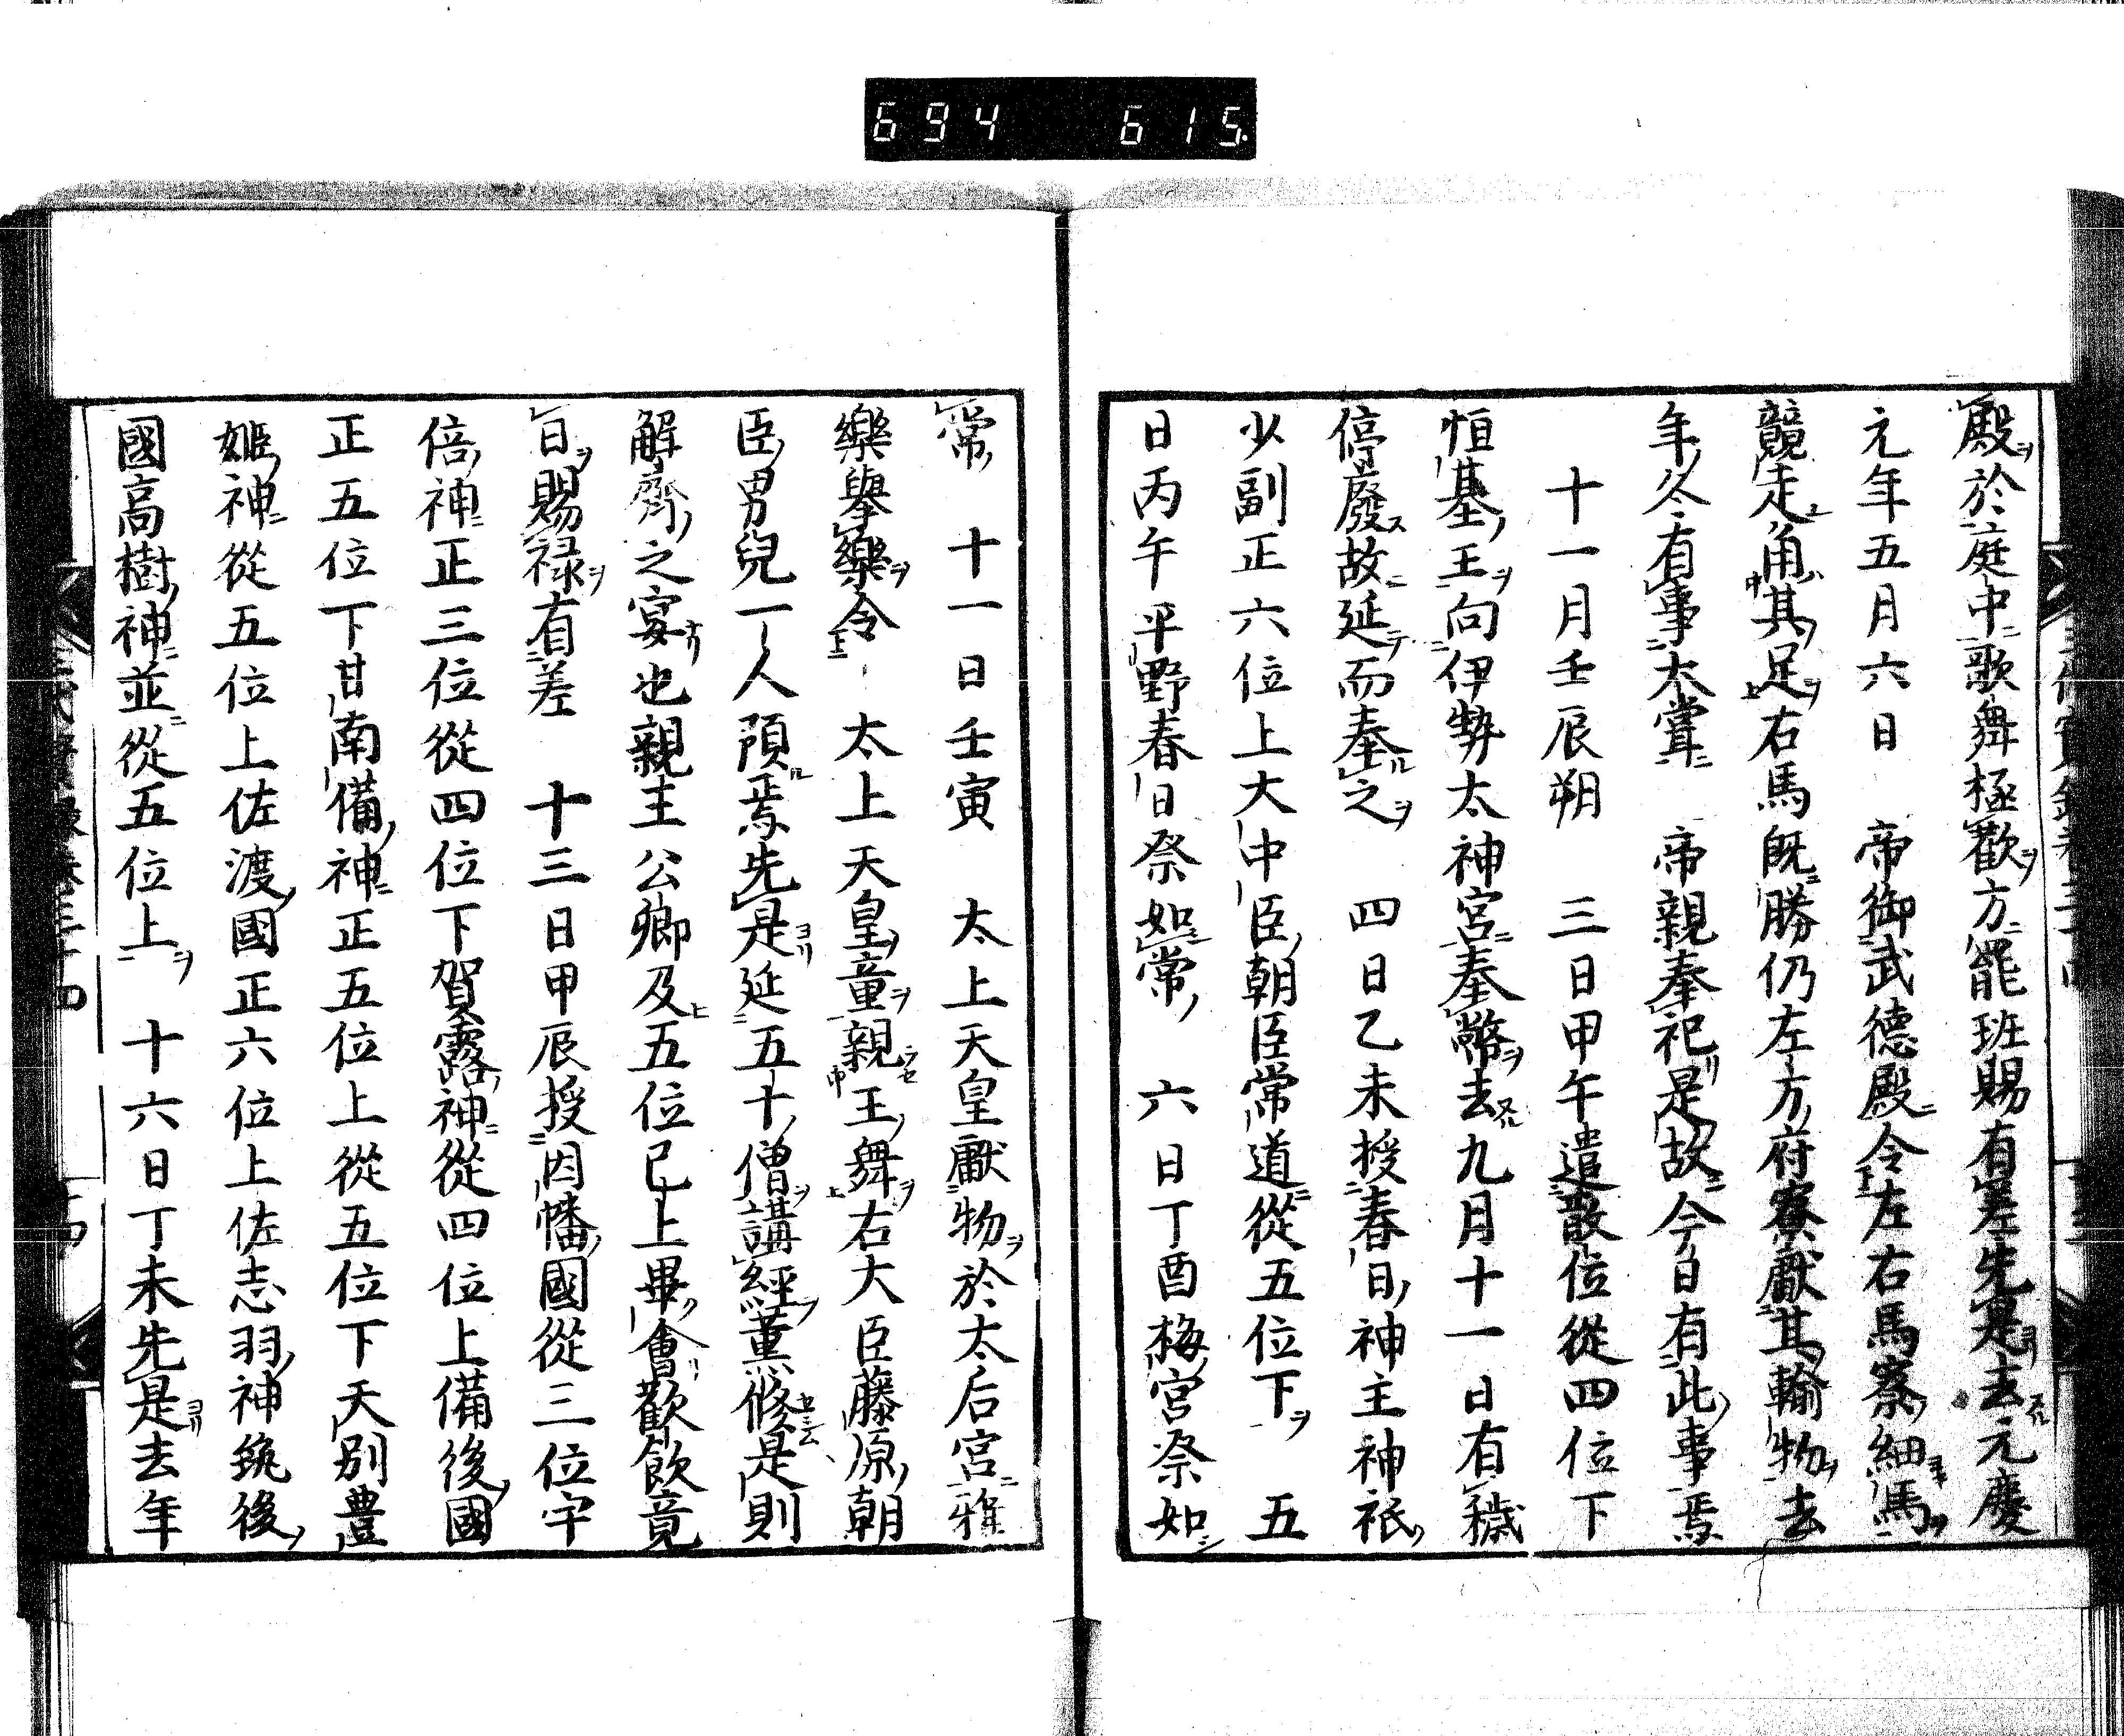 694 615
殿於庭中歌舞極歡方罷班賜有差先是去元慶
元年五月六日　帝御武德殿令左右馬寮細馬
競走角其足右馬既勝仍左方府寮獻其輸物去
年冬有事大嘗　帝親奉祀是故今日有此事焉
十一月壬辰朔　三日甲午遣散位從四位下
恒基王向伊勢太神宮奉幣去九月十一日有穢
停廢故延而奉之　四日乙未授春日神主神祇
少副正六位上大中臣朝臣常道從五位下　五
日丙午平野春日祭如常　六日丁酉梅宮祭如
常　十一日壬寅　太上天皇獻物於太后宮雅
樂擧樂令　太上天皇童親王舞右大臣藤原朝
臣男兒一人預焉先是延五十僧講經薰修是則
解齋之宴也親王公卿及五位已上畢會歡飮竟
日賜禄有差　十三日甲辰授因幡國從三位宇
倍神正三位從四位下賀露神從四位上備後國
正五位下甘南備神正五位上從五位下天別豊
姬神從五位上佐渡國正六位上佐志羽神筑後
國高樹神並從五位上　十六日丁未先是去年